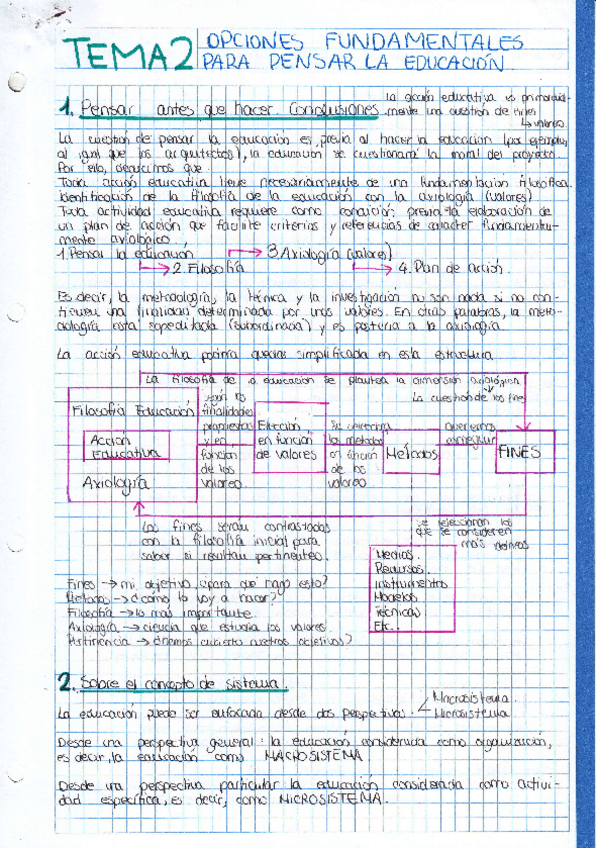 TEMA 2
OPCIONES FUNDAMENTALES
PARA PENSAR LA EDUCACIÓN
1. Pensar antes que hacer. Conclusiones.
la acción educativa es primordial-
mente una cuestión de fines
↳ valores
La cuestión de pensar la educación es previa al hacer la educación (por ejemplo,
al igual que los arquitectos), la educación se cuestionaría la moral del proyecto.
Por ello, deducimos que:
Toda acción educativa tiene necesariamente de una fundamentación filosófica
identificación de la filosofía de la educación con la axiología (valores)
Toda actividad educativa requiere como condición previa la elaboración de
un plan de acción que facilite criterios y referencias de carácter fundamenta-
mente axiológico.
1. Pensar la educación
→ 2. Filosofía
→ 3. Axiología (valores)
→ 4. Plan de acción.
Es decir, la metodología, la técnica y la investigación no son nada si no con-
tienen una finalidad determinada por unos valores. En otras palabras, la meto-
dología está supeditada (subordinada) y es posterior a la axiología.
La acción educativa podría quedar simplificada en esta estructura.
La filosofía de la educación se plantea la dimensión axiológica
La cuestión de los fines
Filosofía Educación
Acción
Educativa
Axiología
finalidades
propuestas
y en
función
de los
valores
Elección
en función
de valores
Se
los métodos
en función
de los
valores
Métodos
queremos
conseguir
FINES
Los fines serán contrastados
con la filosofía inicial para
saber si resultan pertinentes.
se seleccionan los
que se consideren
más
Medios.
Recursos.
Instrumentos
Modelos
Técnicas
Etc..
Fines → mi objetivo ¿para qué hago esto?
Métodos → ¿cómo lo voy a hacer?
Filosofía → lo más importante
Axiología → ciencia que estudia los valores
Pertinencia → ¿hemos cubierto nuestros objetivos?
2. Sobre el concepto de sistema.
La educación puede ser enfocada desde dos perspectivas:
Macrosistema.
Microsistema
Desde una perspectiva general: la educación considerada como organización,
es decir, la educación como MACROSISTEMA.
Desde una perspectiva particular la educación considerada como activi-
dad específica, es decir, como MICROSISTEMA.